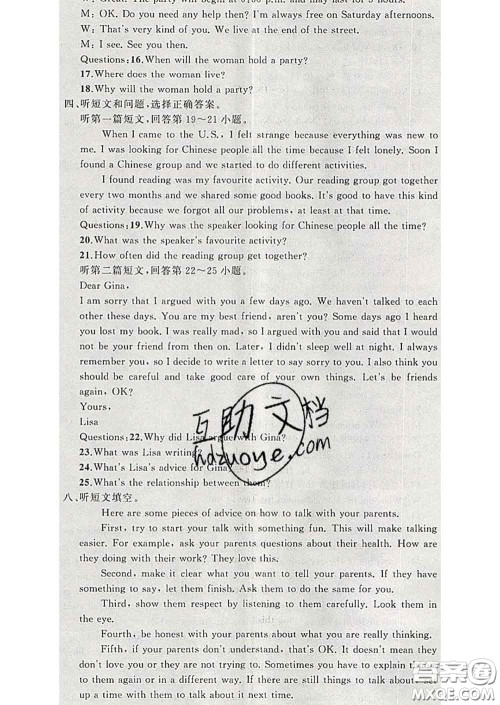 W: Great. The party will begin at 6:00 p.m. and may last for 3 hours.
M: OK. Do you need any help then? I'm always free on Saturday afternoons.
W: That's very kind of you. We live at the end of the street.
M: I see. See you then.
Questions:16. When will the woman hold a party?
17. Where does the woman live?
18. Why will the woman hold a party?
四、听短文和问题,选择正确答案。
听第一篇短文,回答第19～21小题。
When I came to the U.S., I felt strange because everything was new to
me. I was looking for Chinese people all the time because I felt lonely. Soon I
found a Chinese group and we started to do different activities.
I found reading was my favourite activity. Our reading group got together
every two months and we shared some good books. It's good to have this kind
of activity because we forgot all our problems, at least at that time.
Questions:19. Why was the speaker looking for Chinese people all the time?
20. What was the speaker's favourite activity?
21. How often did the reading group get together?
听第二篇短文,回答第22～25小题。
Dear Gina,
I am sorry that I argued with you a few days ago. We haven't talked to each
other these days. You are my best friend, aren't you? Some days ago I heard
you lost my book. I was really mad, so I argued with you and said that I would
not be your friend from then on. Later, I didn't sleep well at night. I always
remember you, so I decide to write a letter to say sorry to you. I also think you
should be careful and take good care of your own things. Let's be friends
again, OK?
Yours,
Lisa
Questions:22. Why did Lisa argue with Gina?
23. What was Lisa writing?
24. What's Lisa's advice for Gina?
25. What's the relationship between them?
八、听短文填空。
Here are some pieces of advice on how to talk with your parents.
First, try to start your talk with something fun. This will make talking
easier. For example, ask your parents questions about their health. How are
they doing with their work? They love this.
Second, make it clear what you want to tell your parents. If they have
something to say, let them finish. Ask them to do the same for you.
Third, show them respect by listening to them carefully. Look them in
the eye.
Fourth, be honest with your parents about what you are really thinking.
Fifth, if your parents don't understand, that's OK. It doesn't mean they
don't love you or they are not trying to. Sometimes you have to explain things
to them again or in a different way. If there are still things to talk about, set
up a time with them to talk about it next time.
互助文档
hdzuoye.com
答案圈
MXQE.COM